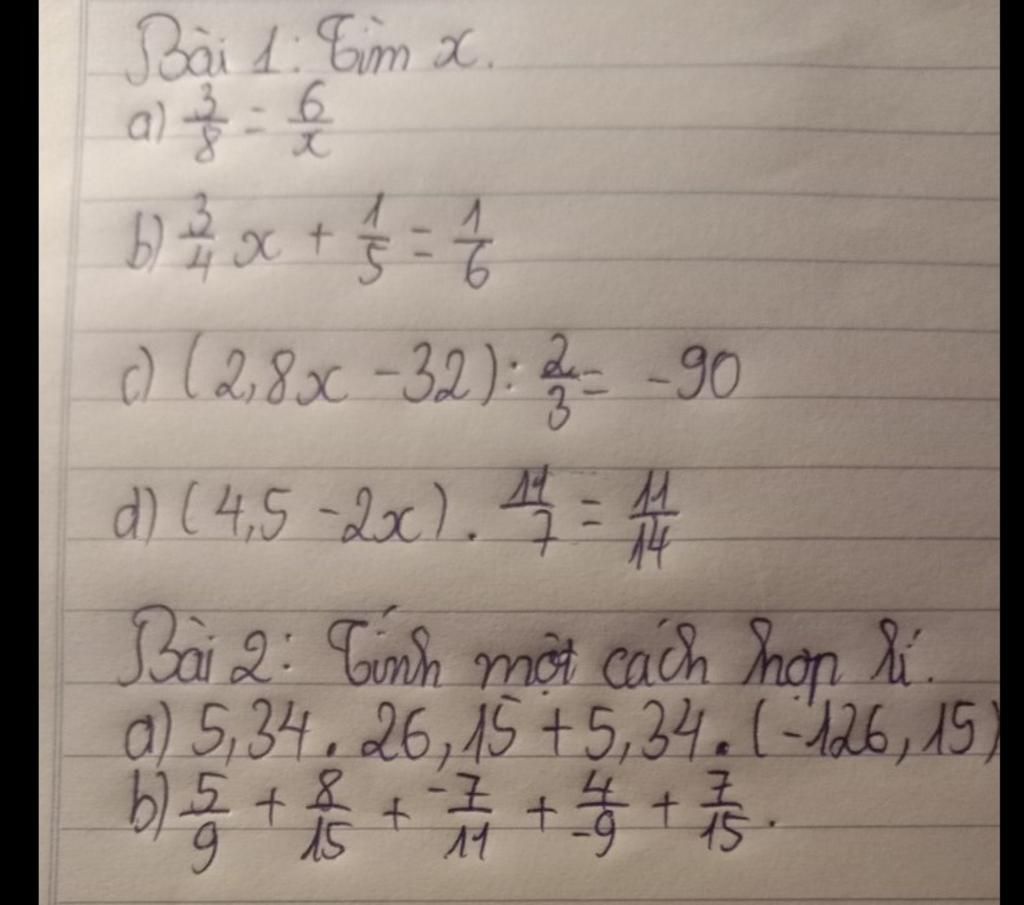 Bài 1: Tìm x.
a) 3/8 = 6/x
b) 3/4 x + 1/5 = 1/6
c) (2,8x - 32) : 2/3 = -90
d) (4,5 - 2x) . 11/7 = 11/14
Bài 2: Tính một cách hợp lí.
a) 5,34 . 26,15 + 5,34 . (-126,15)
b) 5/9 + 8/15 + -7/11 + 4/-9 + 7/15 .